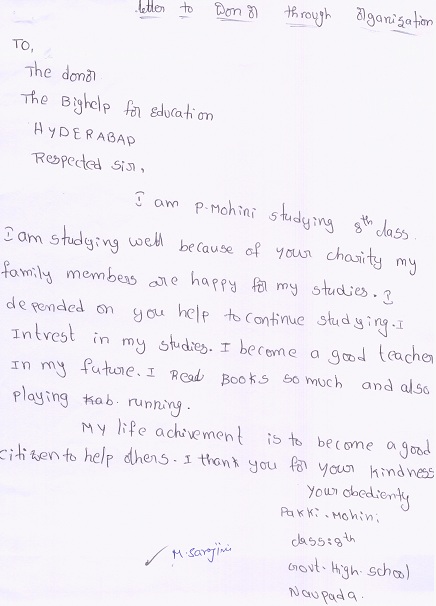 letter to Donor through organisation
TO,
The donor
The Bighelp for Education
HYDERABAD
Respected sir,
I am P.Mohini studying 8th class.
I am studying well because of your charity my
family members are happy for my studies. I
depended on you help to continue studying. I
Intrest in my studies. I become a good teacher
In my future. I Read Books so much and also
playing kab. running.
My life achivement is to become a good
citizen to help others. I thank you for your kindness
Your obedienty
Pakki. Mohini
class:8th
Govt. High. school
Naupada.
M. Sarojini